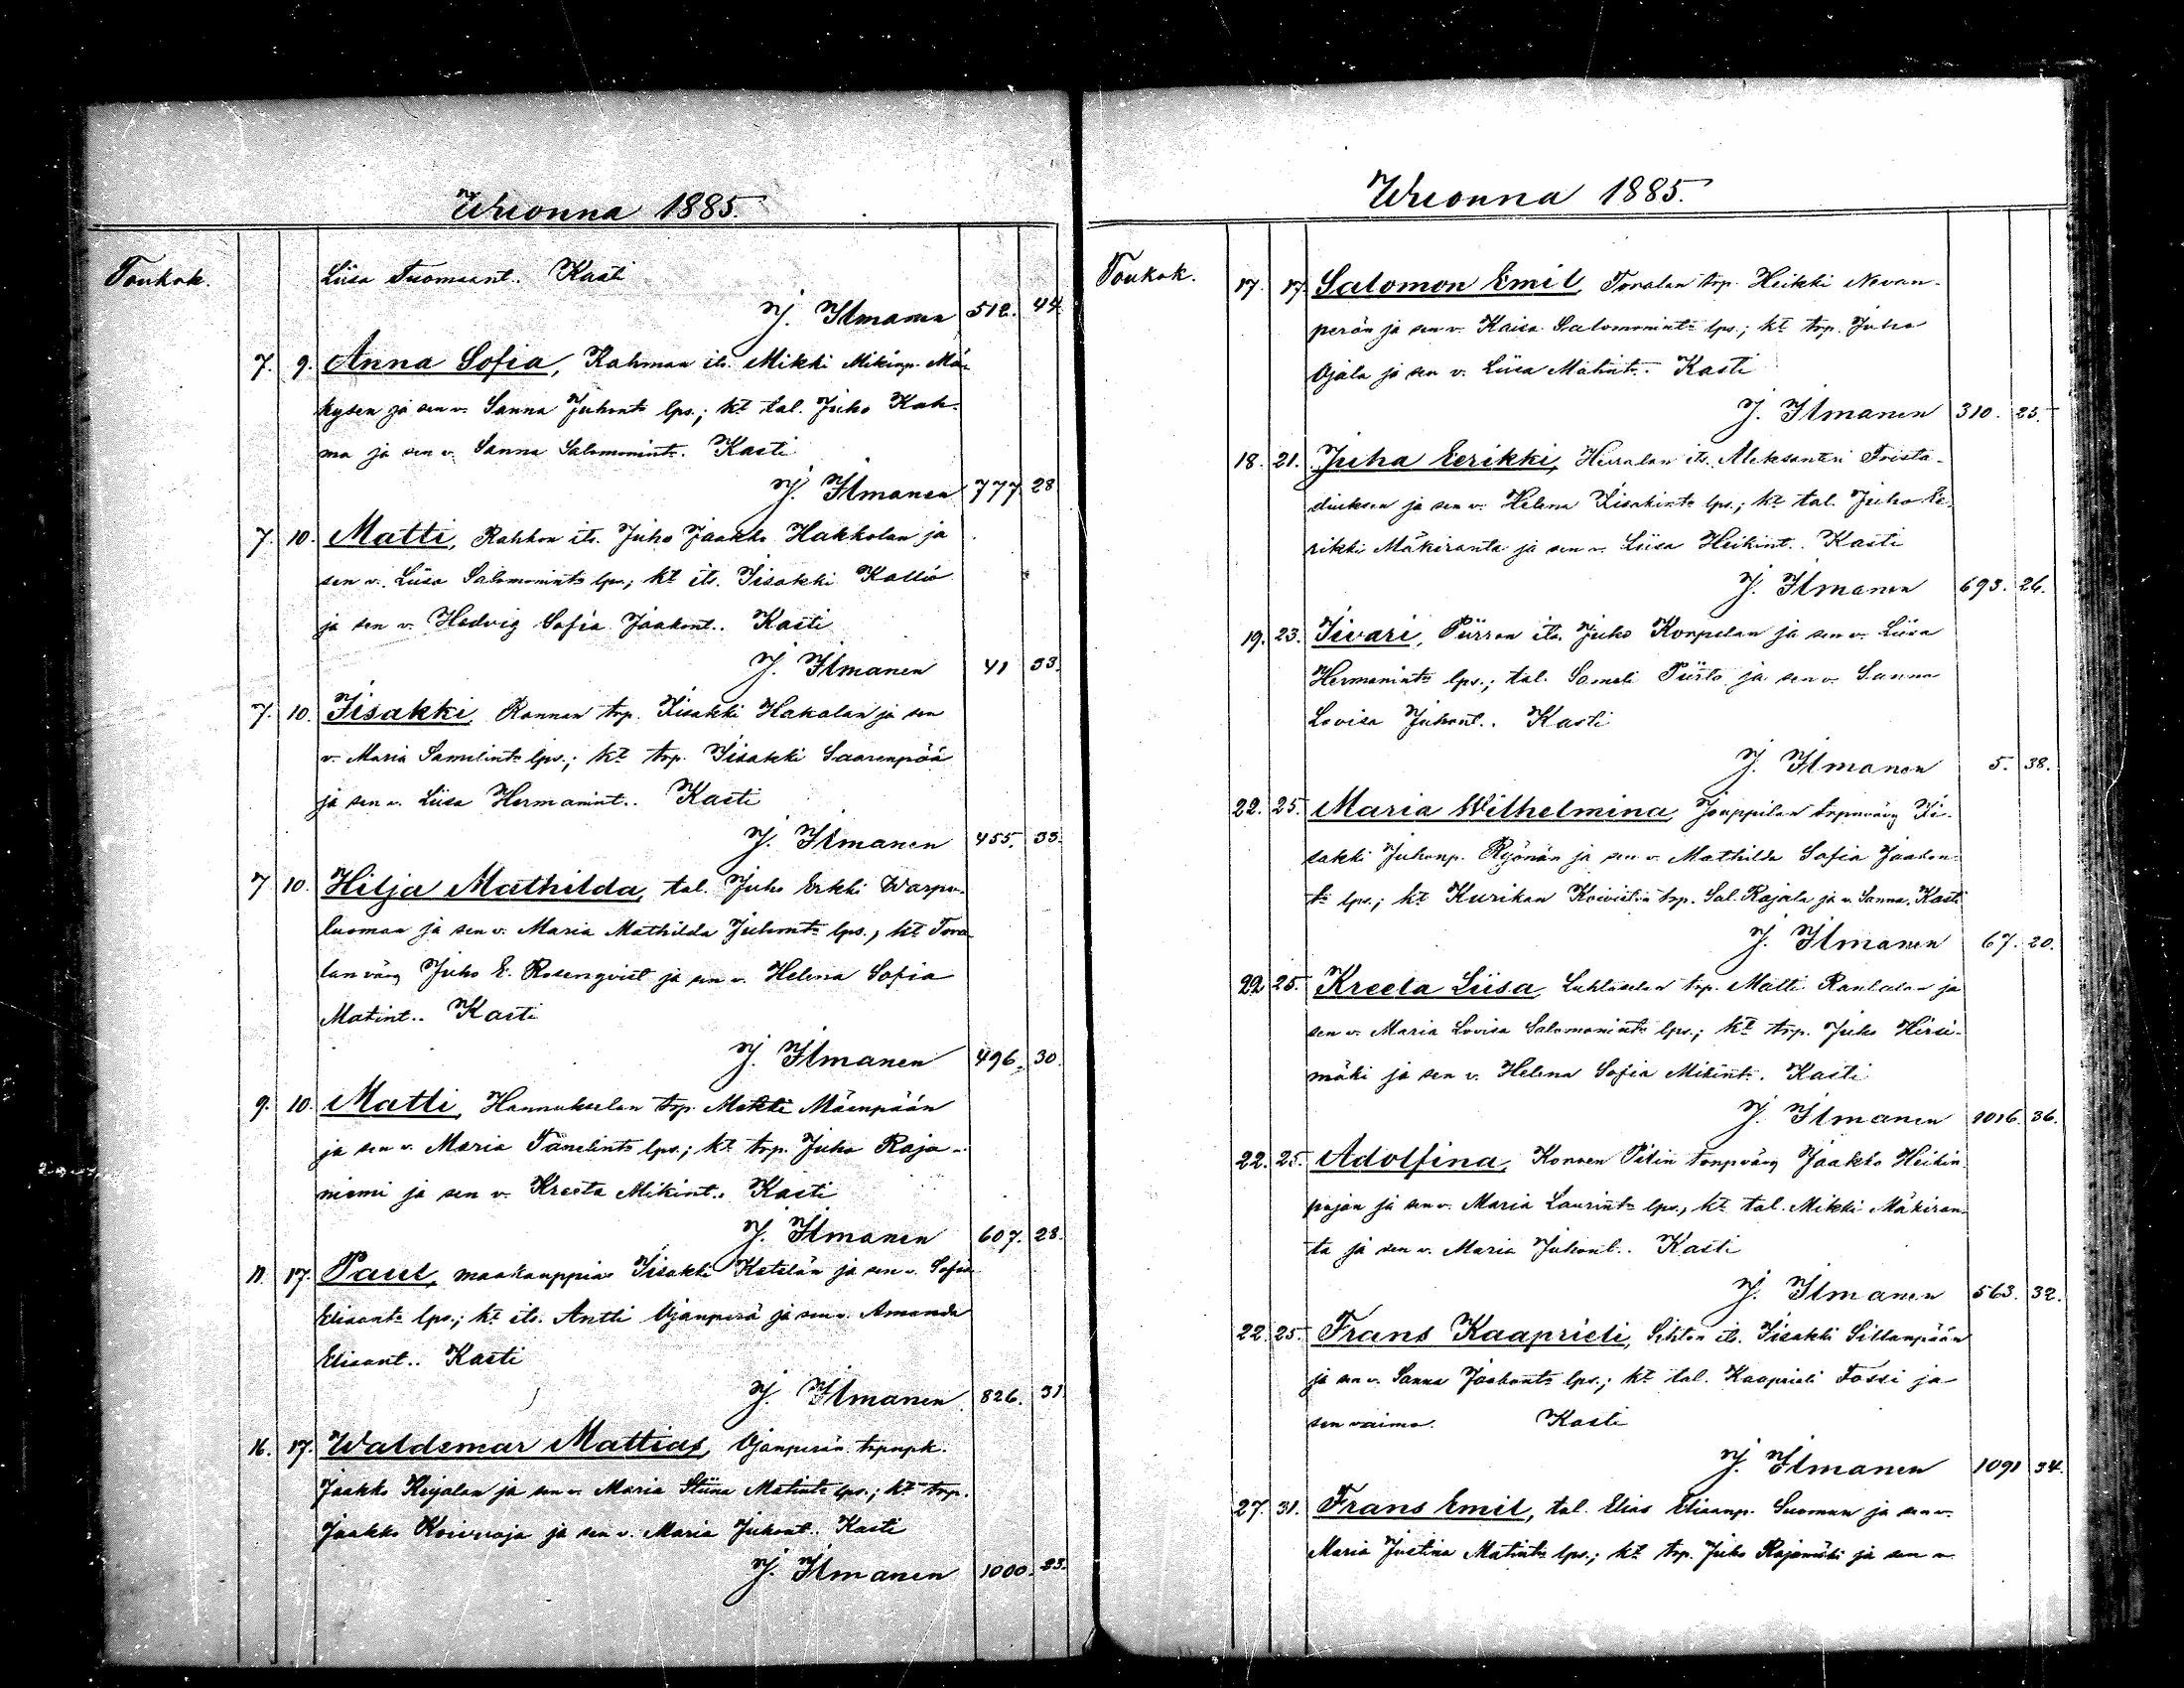 Wuonna 1885.
Toukok. Liisa Tuomaant.. Kasti
J. Ilmanen 512. 44.
7. 9. Anna Sofia, Kahman its. Mikki Mikinp. Mä-
kysen ja sen v. Sanna Juhont. lps.; kt tal. Juho Kah-
ma ja sen v. Sanna Salomonint. Kasti
J. Ilmanen 777 28
7. 10. Matti, Rahkon its. Juho Jaakko Hakkolan ja
sen v. Liisa Salomonint. lps.; kt its. Iisakki Kallio
ja sen v. Hedvig Sofia Jaakont.. Kasti
J. Ilmanen 41 33.
7. 10. Iisakki, Rannan trp. Iisakki Hakalan ja sen
v. Maria Samelint. lps.; kt trp. Iisakki Saarenpää
ja sen v. Liisa Hermanint.. Kasti
J. Ilmanen 455. 33.
7 10. Hilja Mathilda, tal. Juho Erkki Warpu-
luoman ja sen v. Maria Mathilda Juhont. lps., kt Tora-
lan väv. Juho E. Rosenqvist ja sen v. Helena Sofia
Matint.. Kasti
J. Ilmanen 496. 30.
9. 10. Matti, Hannukselan trp. Matti Mäenpään
ja sen v. Maria Tanelint. lps.; kt trp. Juho Raja-
niemi ja sen v. Kreeta Mikint.. Kasti
J. Ilmanen 607. 28.
11. 17. Paul, maakauppias Iisakki Ketolan ja sen v. Sofia
Elisant. lps.; kt its. Antti Ojanperä ja sen v. Amanda
Elisant.. Kasti
J. Ilmanen 826. 31
16. 17. Waldemar Mattias, Ojanperän trpnpk.
Jaakko Keijalan ja sen v. Maria Stiina Matint. lps.; kt trp.
Jaakko Koivuoja ja sen v. Maria Juhont.. Kasti
J. Ilmanen 1000. 23.
Wuonna 1885.
Toukok. 17. 17. Salomon Emil, Toralan trp. Heikki Nevan-
perän ja sen v. Kaisa Salomonint. lps.; kt trp. Juho
Ojala ja sen v. Liisa Matint.. Kasti
J. Ilmanen 310. 25.
18. 21. Juha Eerikki, Herralan its. Aleksanteri
ja sen v. Helena Iisakint. lps.; kt tal. Juho Ee-
rikki Mäkiranta ja sen v. Liisa Heikint.. Kasti
J. Ilmanen 693. 26.
19. 23. Iivari, Piirron its. Juho Korpelan ja sen v. Liisa
Hermanint. lps.; tal. Sameli Piirto ja sen v. Sanna
Lovisa Juhont.. Kasti
J. Ilmanen 5. 38.
22. 25. Maria Wilhelmina, Jouppilan trpnväv. Ii-
sakki Juhonp. Ryönän ja sen v. Mathilda Sofia Jaakon-
t. lps.; kt Kurikan Koiviston trp. Sal. Rajala ja v. Sanna. Kasti
J. Ilmanen 67. 20.
22 25. Kreeta Liisa, Luhtaselan trp. Matti Rantalan ja
sen v. Maria Lovisa Salomonint. lps.; kt trp. Juho Hirsi-
mäki ja sen v. Helena Sofia Mikint.. Kasti
J. Ilmanen 1016. 36.
22. 25. Adolfina, Korven Pitin trpnväv. Jaakko Heikin-
pojan ja sen v. Maria Laurint. lps., kt tal. Mikki Mäkiran-
ta ja sen v. Maria Juhont.. Kasti
J. Ilmanen 563. 32.
22. 25. Frans Kaaprieli, Sihton its. Iisakki Sillanpään
ja sen v. Sanna Jaakont. lps.; kt tal. Kaaprieli Fossi ja
sen vaimo. Kasti
J. Ilmanen 1091 34.
27. 31. Frans Emil, tal. Elias Eliaanp. Luoman ja sen v.
Maria Justina Matint. lps.; kt trp. Juho Rajamäki ja sen v.